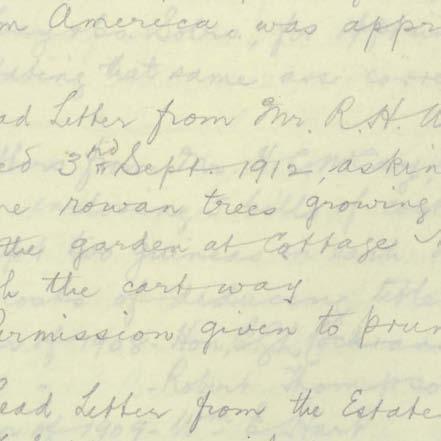 m America was appr
ad Letter from Mr. R. H. W
ed 3rd Sept. 1912, askin
ne rowan trees growing
the garden at Cottage
h the cart way
ermission given to prun
ead Letter from the Estate